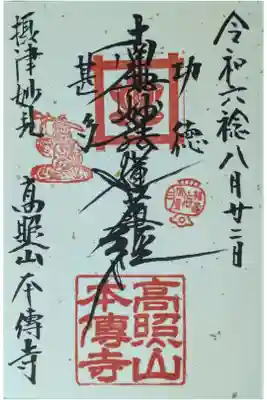 令和六稔八月廿二日
功德
南無妙法蓮華經
甚多
摂津妙見
高照山本傳寺
高照山
本傳寺